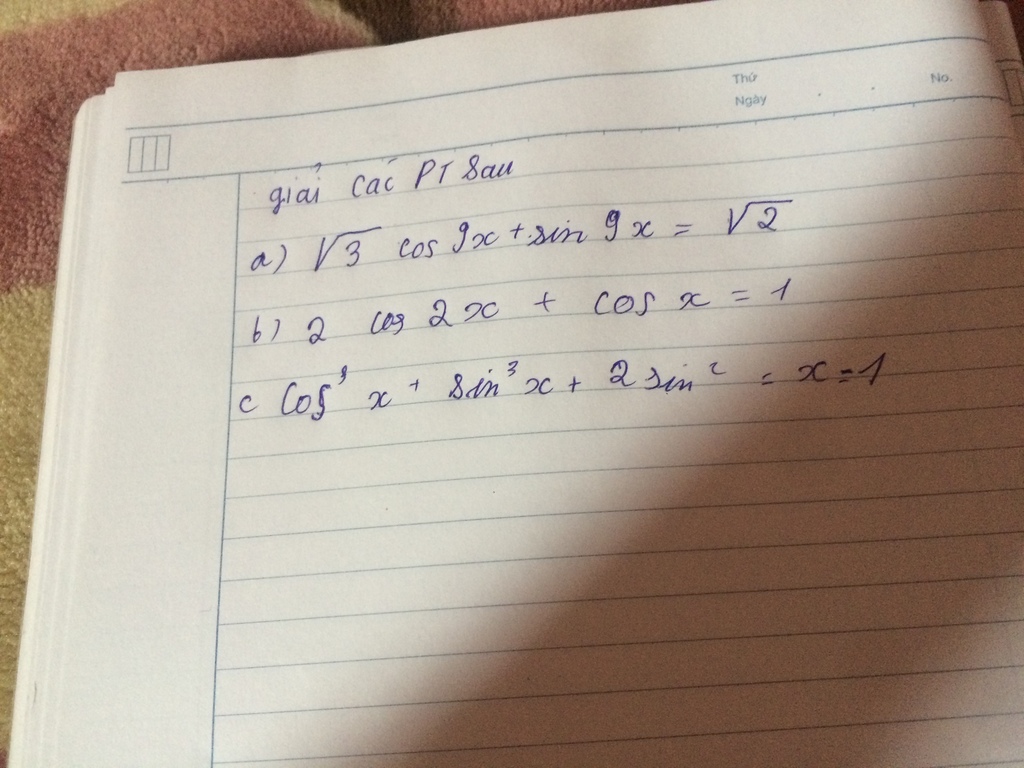 Thứ
Ngày . . No.
giải các PT sau
a) √3 cos 9x + sin 9x = √2
b) 2 cos 2x + cos x = 1
c cos³ x + sin³ x + 2 sin² = x = 1